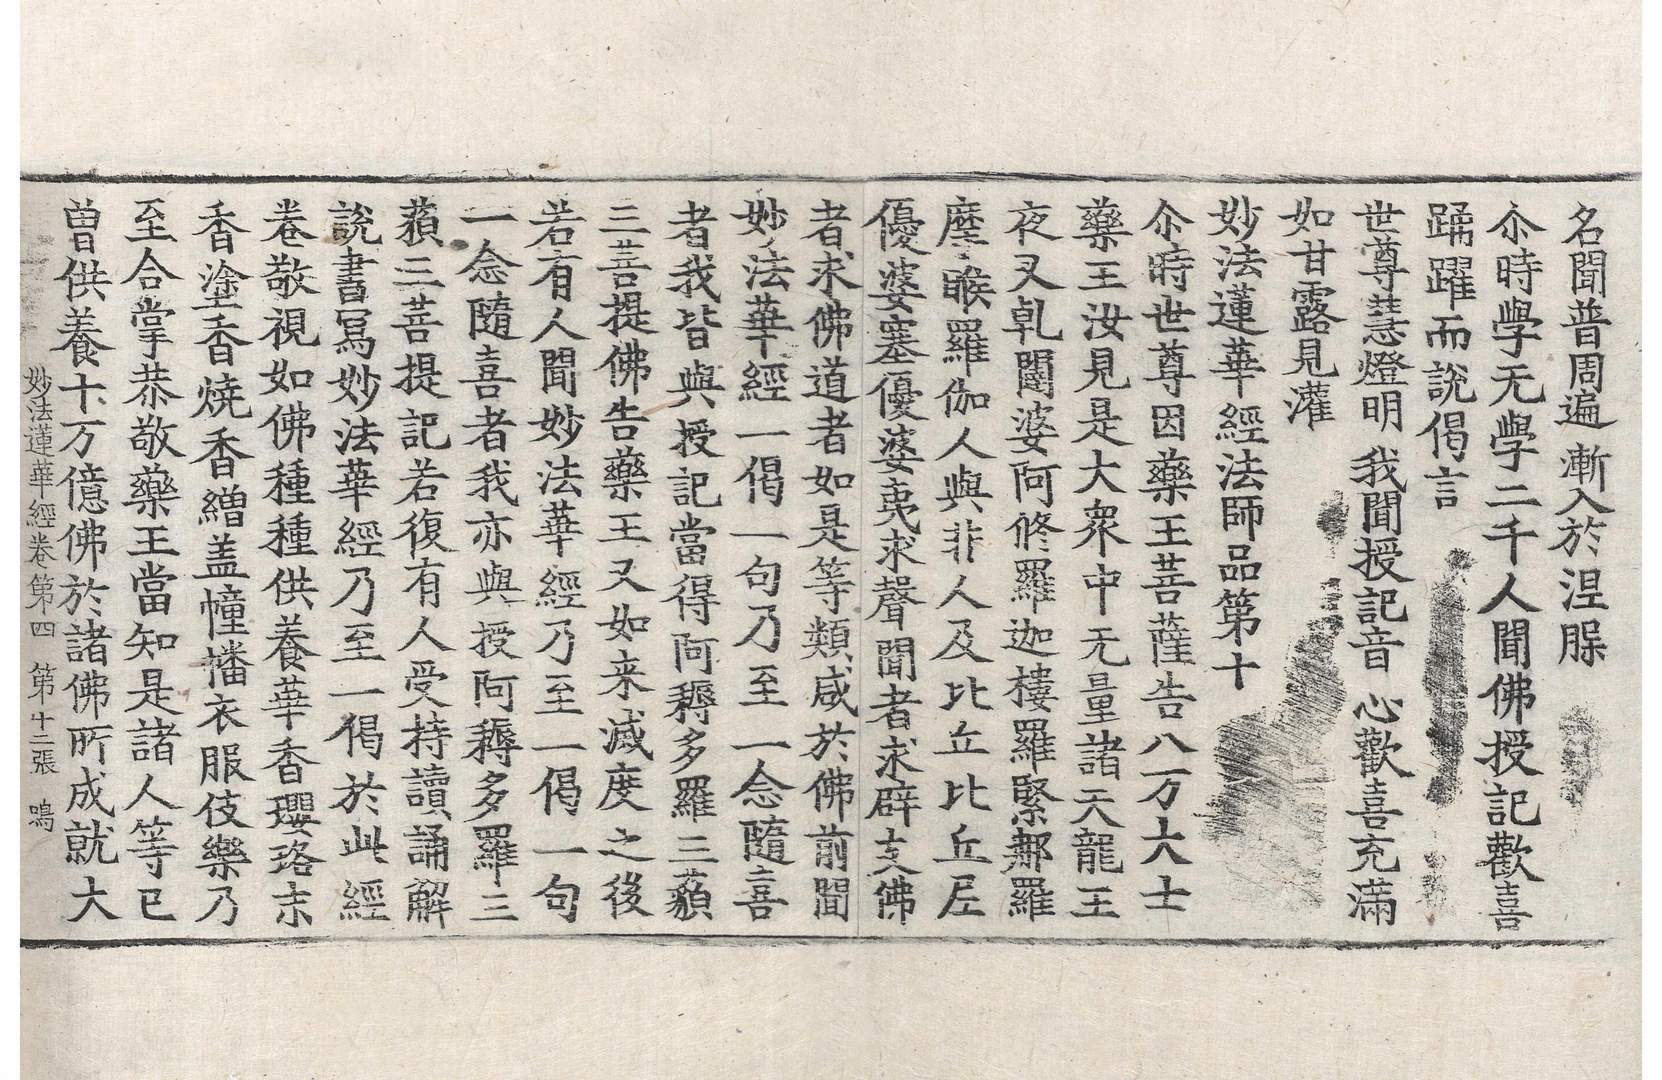 名聞普周遍 漸入於涅槃
尒時學无學二千人聞佛授記歡喜
踊躍而說偈言
世尊慧燈明 我聞授記音 心歡喜充滿
如甘露見灌
妙法蓮華經法師品第十
尒時世尊因藥王菩薩告八万大士
藥王汝見是大衆中无量諸天龍王
夜叉乹闥婆阿修羅迦樓羅緊那羅
摩睺羅伽人與非人及比丘比丘尼
優婆塞優婆夷求聲聞者求辟支佛
者求佛道者如是等類咸於佛前聞
妙法華經一偈一句乃至一念隨喜
者我皆與授記當得阿耨多羅三藐
三菩提佛告藥王又如来滅度之後
若有人聞妙法華經乃至一偈一句
一念隨喜者我亦與授阿耨多羅三
藐三菩提記若復有人受持讀誦解
說書寫妙法華經乃至一偈於此經
卷敬視如佛種種供養華香瓔珞末
香塗香燒香繒盖幢幡衣服伎樂乃
至合掌恭敬藥王當知是諸人等已
曽供養十万億佛於諸佛所成就大
妙法蓮華經卷第四 第十二張 鳴